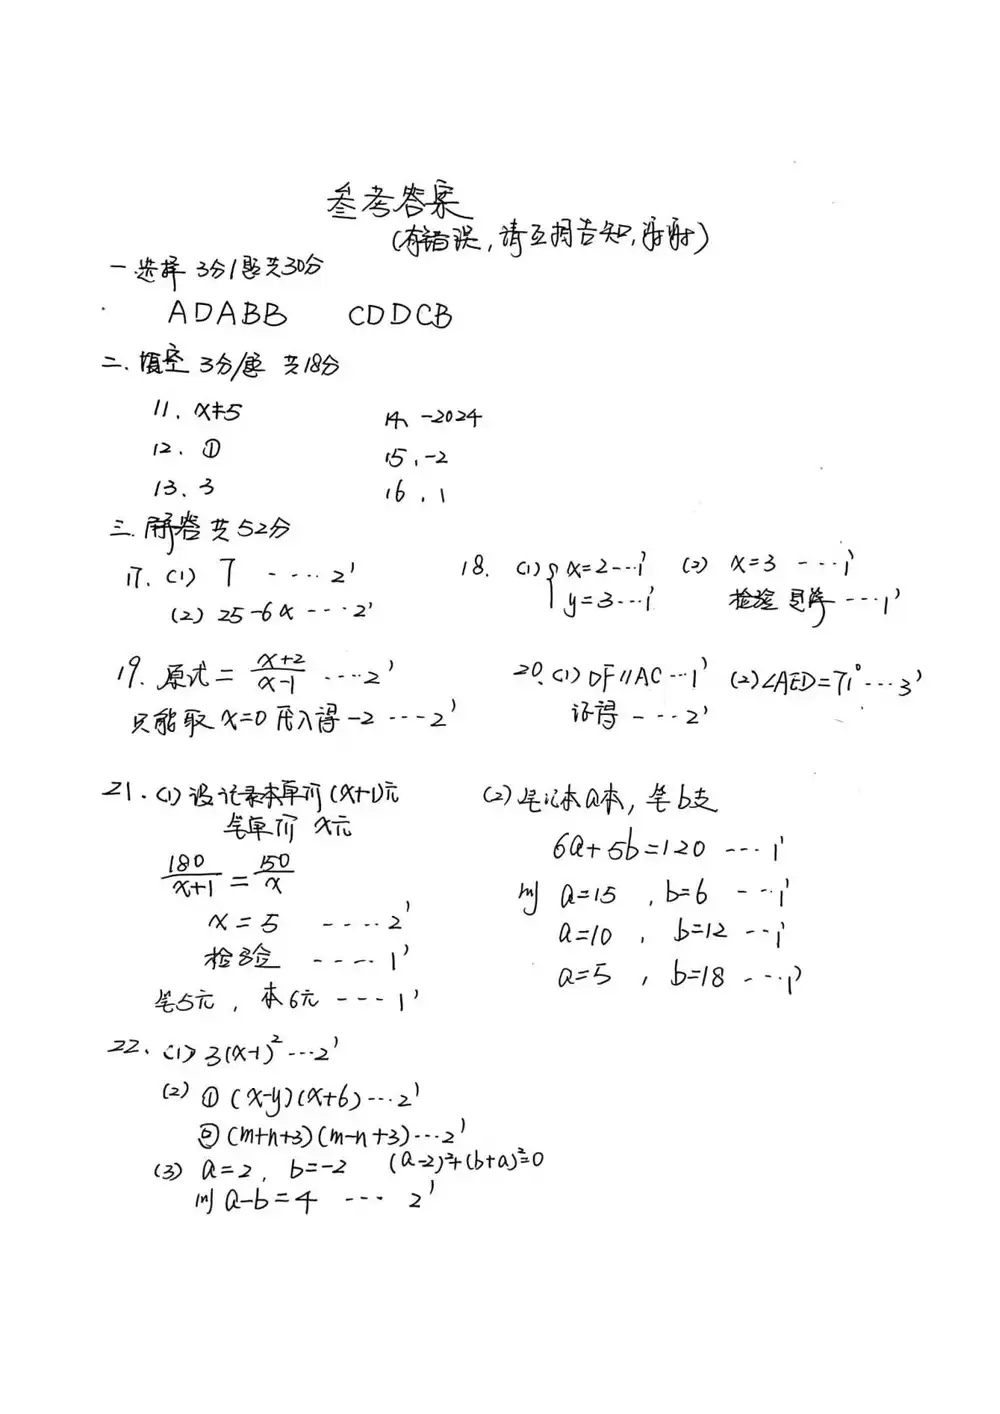 参考答案
(有错误,请互相告知,谢谢)
一.选择 3分/题共30分
ADABB CDDCB
二.填空 3分/题 共18分
11、x≠5 14、-2024
12、① 15、-2
13、3 16、1
三.解答 共52分
17.(1) 7 ----2'
(2) 25-6x ----2'
18. (1) { x=2---1'
y=3---1'
(2) x=3 ----1'
检验 是解 ---1'
19. 原式= \frac{x+2}{x-1} ----2'
只能取 x=0 代入得 -2 ---2'
20.(1) DF//AC---1'
证得 ----2'
(2)∠AED=71°---3'
21.(1)设记录本单价(x+1)元
笔单价 x元
\frac{180}{x+1}=\frac{150}{x}
x=5 ----2'
检验 ----1'
笔5元,本6元 ----1'
(2)笔记本a本,笔b支
6a+5b=120 ----1'
则 a=15 , b=6 ---1'
a=10 , b=12 ---1'
a=5 , b=18 ---1'
22.(1) 3(x-1)² ---2'
(2) ① (x-y)(x+6)---2'
② (m+n+3)(m-n+3)---2'
(3) a=2, b=-2 (a-2)²+(b+a)²=0
则 a-b=4 --- 2'